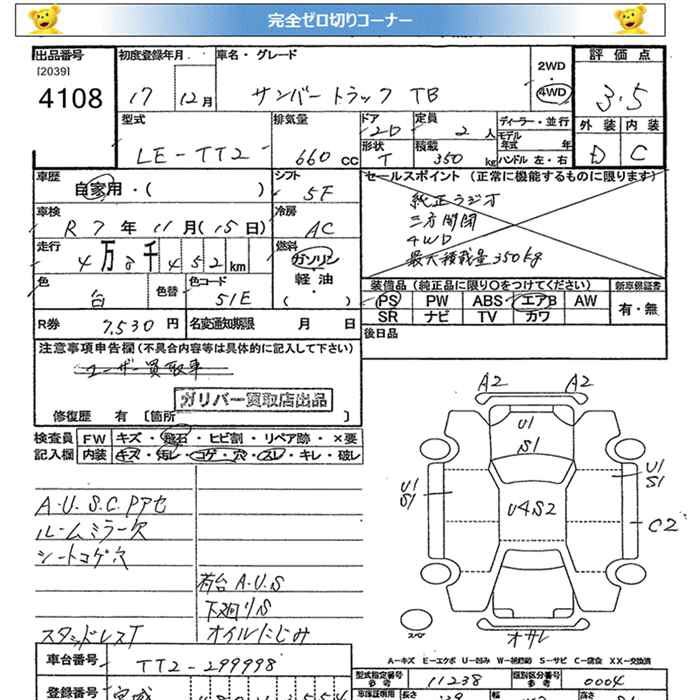 完全ゼロ切りコーナー
出品番号 初度登録年月 車名・グレード 2WD 評価点
[2039]
4108 17 12月 サンバートラック TB 4WD 3.5
型式 排気量 ドア 定員 ディーラー・並行 外装 内装
2D 2 人 モデル年式 年
LE-TT2- 660 cc 形状 積載 ハンドル 左・右 D C
T 350 kg
車歴 シフト セールスポイント (正常に機能するものに限ります)
自家用・( ) 5F 純正ラジオ
車検 冷房 三方開閉
R7年 11月(15日) AC 4WD
走行 燃料 最大積載量350kg
4万8千452km ガソリン
軽油・( )
色 色替 色コード 装備品(純正品に限り○をつけてください) 新車保証書
51E PS PW ABS エアB AW 有・無
SR ナビ TV カワ
R券 7,530円 名変通知期限 月 日 後日品
注意事項申告欄(不具合内容等は具体的に記入して下さい)
ユーザー買取車
ガリバー買取店出品
修復歴 有 〔箇所
検査員 FW キズ・飛石・ヒビ割・リペア跡・×要
記入欄 内装 キズ・汚レ・コゲ・穴・スレ・キレ・破レ
A2 A2
U1
S1
U1
S1
U1
S1
U4S2
C2
A.U.S.C.Pアセ
ルームミラー欠
シートコゲ穴
荷台A.U.S
下廻りS
スタッドレスT オイルにじみ
スペア
オサレ
A-キズ E-エクボ U-凹み W-補修跡 S-サビ C-腐食 XX-交換済
車台番号 TT2-299998 型式指定番号 参考 11238 類別区分番号 参考 0004
登録番号 宮城